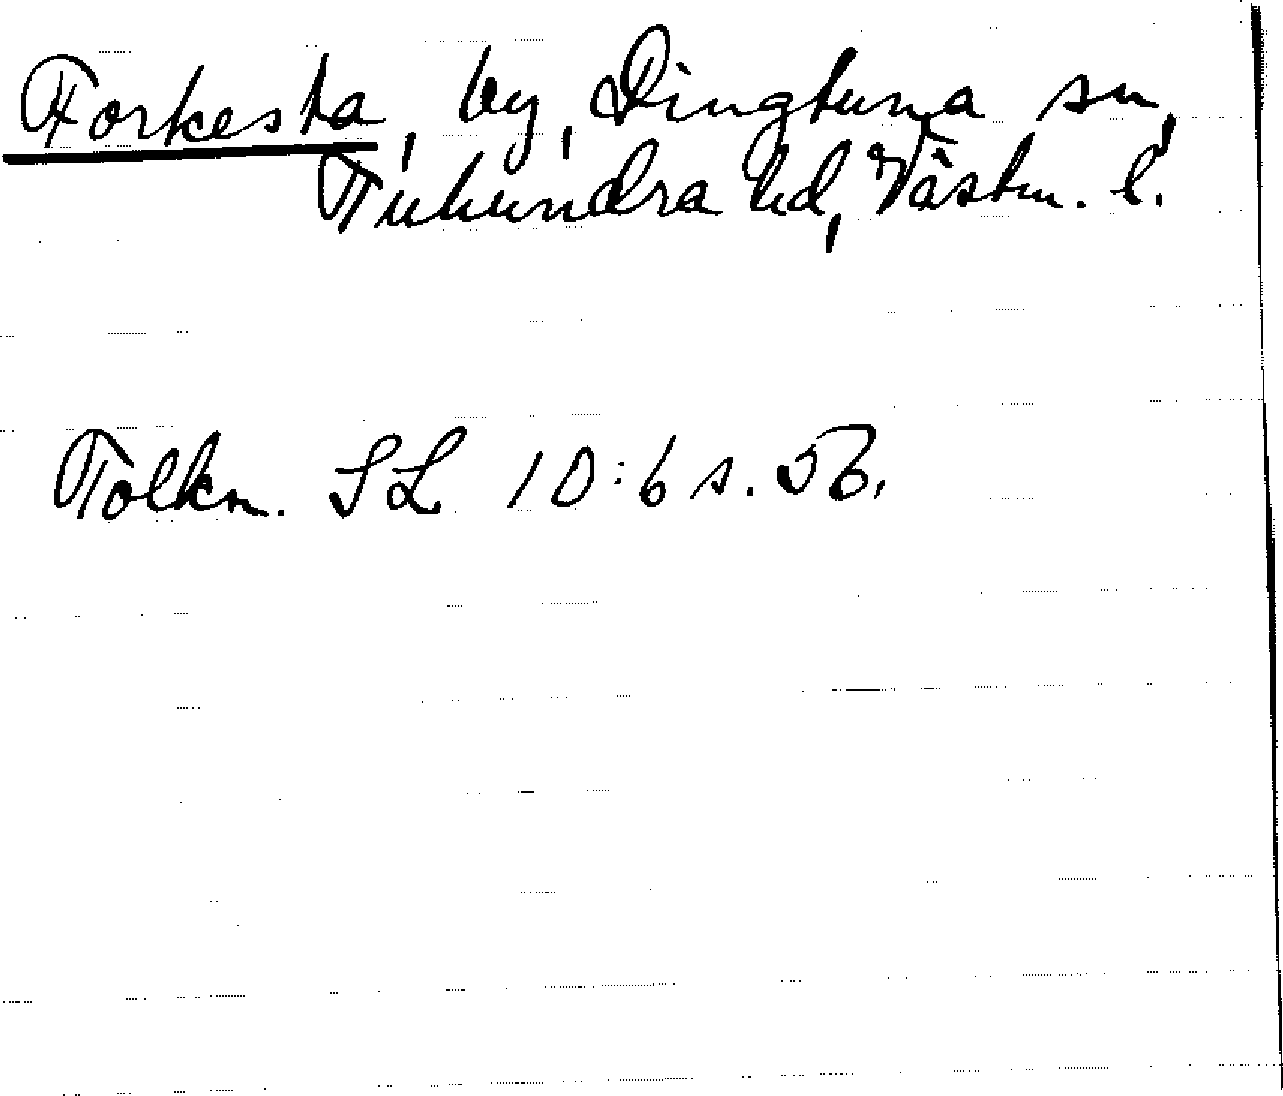 Forkesta, by, Dingtuna sn,
Tuhundra hd, Västm. l.
Tolkn. SL 10:6 s. 56.